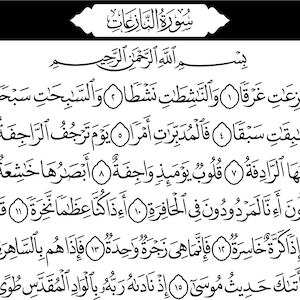 سُورَةُ النَّازِعَاتِ
بِسْمِ اللَّهِ الرَّحْمَٰنِ الرَّحِيمِ
غَرْقًا ١ وَالنَّاشِطَاتِ نَشْطًا ٢ وَالسَّابِحَاتِ
سَبْقًا ٤ فَالْمُدَبِّرَاتِ أَمْرًا ٥ يَوْمَ تَرْجُفُ الرَّاجِفَةُ
الرَّادِفَةُ ٧ قُلُوبٌ يَوْمَئِذٍ وَاجِفَةٌ ٨ أَبْصَارُهَا خَاشِعَةٌ
أَإِنَّا لَمَرْدُودُونَ فِي الْحَافِرَةِ ١٠ أَإِذَا كُنَّا عِظَامًا نَخِرَةً ١١
كَرَّةٌ خَاسِرَةٌ ١٢ فَإِنَّمَا هِيَ زَجْرَةٌ وَاحِدَةٌ ١٣ فَإِذَا هُمْ بِالسَّاهِرَةِ
حَدِيثُ مُوسَىٰ ١٥ إِذْ نَادَاهُ رَبُّهُ بِالْوَادِ الْمُقَدَّسِ طُوًى